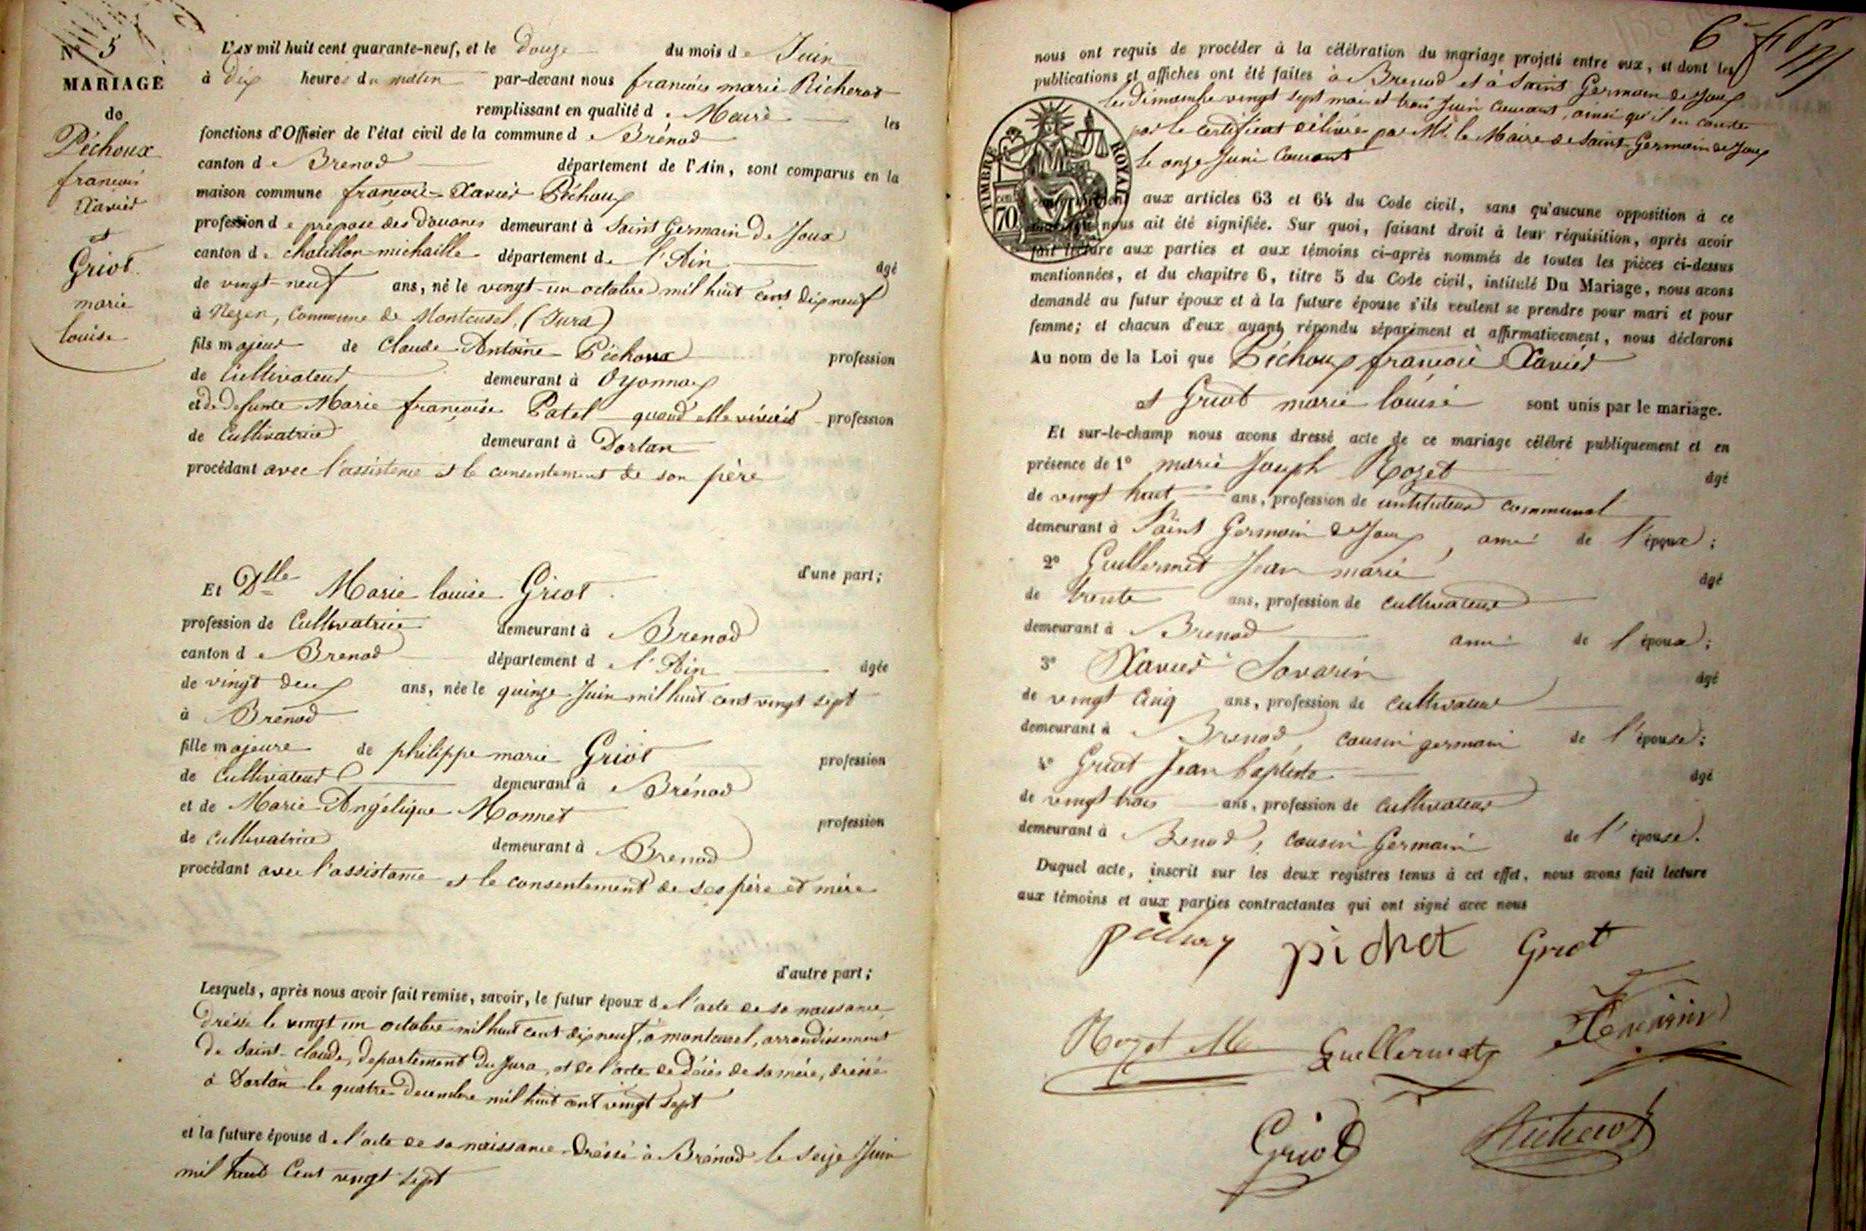 N° 5
MARIAGE
de
Péchoux
françois
Xavier
et
Griot
marie
louise
L'AN mil huit cent quarante-neuf, et le douze du mois de Juin
à dix heures du matin par-devant nous françois marie Richerot
remplissant en qualité de Maire les
fonctions d'Officier de l'état civil de la commune de Brénod
canton de Brenod département de l'Ain, sont comparus en la
maison commune françois-Xavier Péchoux
profession de préposé des Douanes demeurant à Saint Germain de Joux
canton de chatillon-michaille département de l'Ain âgé
de vingt-neuf ans, né le vingt-un octobre mil huit cent dix neuf
à Nezen, Commune de Montcusel, (Jura)
fils majeur de Claude Antoine Péchoux profession
de Cultivateur demeurant à Oyonnax
et de defunte Marie françoise Patel quand elle vivait profession
de Cultivatrice demeurant à Dortan
procédant avec l'assistance et le consentement de son père
d'une part;
Et Dlle Marie louise Griot
profession de Cultivatrice demeurant à Brenod
canton de Brenod département de l'Ain âgée
de vingt deux ans, née le quinze Juin mil huit cent vingt sept
à Brénod
fille majeure de philippe marie Griot profession
de Cultivateur demeurant à Brénod
et de Marie Angélique Monnet profession
de cultivatrice demeurant à Brenod
procédant avec l'assistance et le consentement de ses père et mère
d'autre part;
Lesquels, après nous avoir fait remise, savoir, le futur époux de l'acte de sa naissance
dréssé le vingt un octobre mil huit cent dix neuf, à montcusel, arrondissement
de Saint-Claude, departement du Jura, et de l'acte de Décès de sa mère, dréssé
à Dortan le quatre Decembre mil huit cent vingt sept
et la future épouse de l'acte de sa naissance dréssé à Brénod le seize Juin
mil huit Cent vingt sept
6
nous ont requis de procéder à la célébration du mariage projeté entre eux, et dont les
publications et affiches ont été faites à Brenod et à Saint Germain de Joux
les Dimanche vingt sept mai et trois Juin Courant, ainsi qu'il en conste
par le certificat délivré par Mr. le Maire de Saint Germain de Joux
le onze Juin Courant
TIMBRE ROYAL
70
aux articles 63 et 64 du Code civil, sans qu'aucune opposition à ce
nous ait été signifiée. Sur quoi, faisant droit à leur réquisition, après avoir
fait lecture aux parties et aux témoins ci-après nommés de toutes les pièces ci-dessus
mentionnées, et du chapitre 6, titre 5 du Code civil, intitulé Du Mariage, nous avons
demandé au futur époux et à la future épouse s'ils veulent se prendre pour mari et pour
femme; et chacun d'eux ayant répondu séparément et affirmativement, nous déclarons
Au nom de la Loi que Péchoux françois Xavier
et Griot marie louise sont unis par le mariage.
Et sur-le-champ nous avons dressé acte de ce mariage célébré publiquement et en
présence de 1° marie Joseph Rozet âgé
de vingt huit ans, profession de instituteur communal
demeurant à Saint Germain de Joux, ami de l'époux;
2° Guillermet Jean marie âgé
de trente ans, profession de cultivateur
demeurant à Brenod ami de l'époux;
3° Xavier Savarin âgé
de vingt cinq ans, profession de cultivateur
demeurant à Brenod, cousin germain de l'épouse;
4° Griot Jean baptiste âgé
de vingt trois ans, profession de cultivateur
demeurant à Brenod, cousin Germain de l'épouse.
Duquel acte, inscrit sur les deux registres tenus à cet effet, nous avons fait lecture
aux témoins et aux parties contractantes qui ont signé avec nous
péchoux pichet Griot
Rozet M Guillermet
Griot Richerot